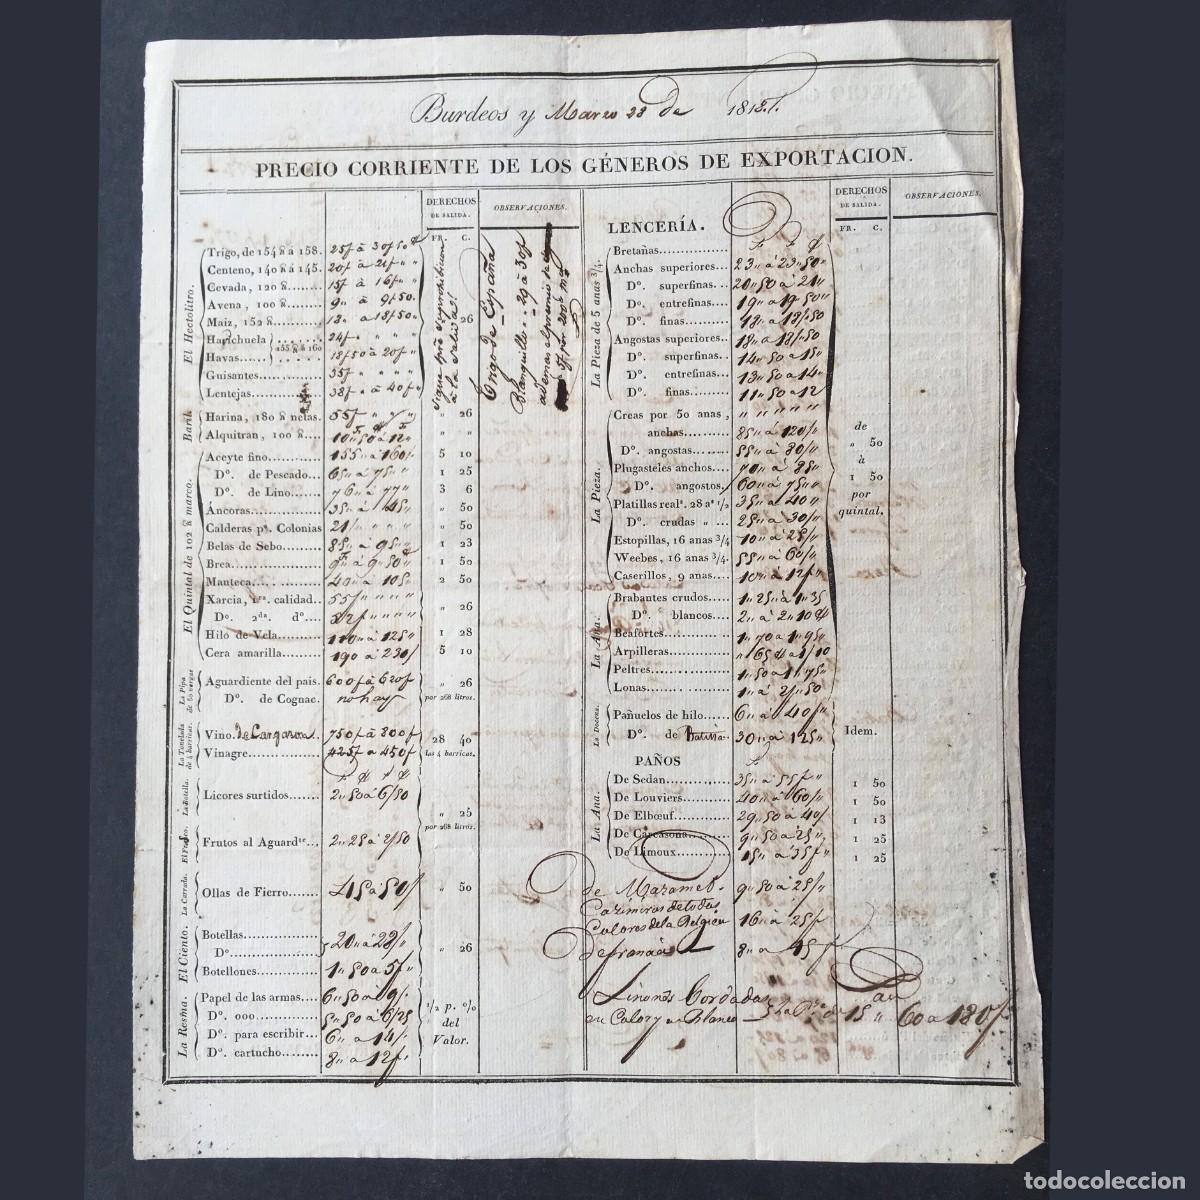 Burdeos y Marzo 28 de 181
PRECIO CORRIENTE DE LOS GÉNEROS DE EXPORTACION.
DERECHOS DE SALIDA. FR. C.
OBSERVACIONES.
El Hectolitro.
Trigo, de 154 ℔ á 158. 25f à 30f50
Centeno, 140 ℔ á 145. 20f à 21f " "
Cevada, 120 ℔ 15f à 16f " "
Avena, 100 ℔ 9 " à 9f50.
Maiz, 152 ℔ 18 " à 18f50 " " 26
Harichuela 155 ℔ á 160 24f " " "
Havas 18f50 à 20f "
Guisantes 35f " " " "
Lentejas 38f " à 40f "
Sigue prohibicion à la salida
Trigo de España
Blanquillo 29 à 30f
ademas el premio de
por 200
Baril.
Harina, 180 ℔ netas. 55f " " " " 26
Alquitran, 100 ℔ 10 " 50 à 12 " " "
El Quintal de 102 ℔ marco.
Aceyte fino 155 " à 160 5 10
Dº. de Pescado 65 " à 75 " 1 25
Dº. de Lino 76 " à 77 " 3 6
Áncoras 35 " à 45 " " 50
Calderas pª. Colonias 21 " " " " 50
Belas de Sebo 85 " à 95 " 1 23
Brea 9 " à 9 " 50 1 50
Manteca 40 " à 105 2 50
Xarcia, 1ra. calidad 55f " " " "
Dº. 2da. dº. 52f " " " " 26
Hilo de Vela 110 " à 125 " 1 28
Cera amarilla 190 à 230 5 10
La Pipa de 50 vergas
Aguardiente del pais. 600f à 620f " 26
Dº. de Cognac. no hay por 268 litros.
La Tonelada de 4 barricas.
Vino. de Cargazon 750f à 800f 28 40
Vinagre 425f à 450f las 4 barricas.
La Botella.
Licores surtidos 2 " 50 à 6/50
" 25
por 268 litros.
El Frasco.
Frutos al Aguardte 2 " 25 à 2/50
La Carrada.
Ollas de Fierro 415 à 50 " 50
El Ciento.
Botellas
Dº. 20 " à 28 " 26
Botellones 1 " 50 à 5f "
La Resma.
Papel de las armas 6 " 50 à 9 "
Dº. 000 5 " 50 à 6/25
Dº. para escribir 6 " à 14 "
Dº. cartucho 8 " à 12f "
1/2 p. o/o del Valor.
LENCERÍA.
DERECHOS DE SALIDA. FR. C.
OBSERVACIONES.
La Pieza de 5 anas 3/4.
Bretañas
Anchas superiores 23 " à 23 " 50
Dº. superfinas 20 " 50 à 21 "
Dº. entrefinas 19 " à 19 " 50
Dº. finas 18 " à 18 " 50
Angostas superiores 18 " à 18 " 50
Dº. superfinas 14 " 50 à 15 "
Dº. entrefinas 13 " 50 à 14 "
Dº. finas 11 " 50 à 12
La Pieza.
Creas por 50 anas, " " " " " "
anchas 85 " à 120 "
Dº. angostas 55 " à 80 "
Plugasteles anchos 70 " à 85 "
Dº. angostos 60 " à 75 "
Platillas reals. 28 as 1/2 35 " à 40 "
Dº. crudas " 25 " à 30 "
Estopillas, 16 anas 3/4 10 " à 25 "
Weebes, 16 anas 3/4. 55 " à 60 "
Caserillos, 9 anas 10 " à 12f "
de " 50 à 1 50 por quintal.
La Ana.
Brabantes crudos 1 " 25 " à 1 " 35
Dº. blancos 2 " à 2 " 10
Beafortes 1 " 70 à 1 " 95
Arpilleras " 65 à 1/10
Peltres 1 " 50 à 1 " 75
Lonas 1 " à 2 " 50
La Docena.
Pañuelos de hilo 6 " à 40f "
Dº. de Batista 30 " à 125 "
Idem.
PAÑOS
La Ana.
De Sedan 35 " à 55f " 1 50
De Louviers 40 " à 60 " 1 50
De Elbœuf 29 " 50 à 40 1 13
De Carcasona 9 " 50 à 25 " 1 25
De Limoux 15 " à 35f " 1 25
de Mazamet 9 " 50 à 25 "
Cazimiras de todos
Colores de la Belgica 16 " à 25f
De francia 8 " à 45f
Linones Bordados
en Color y en Blanco 15 " 60 à 180f
todocoleccion